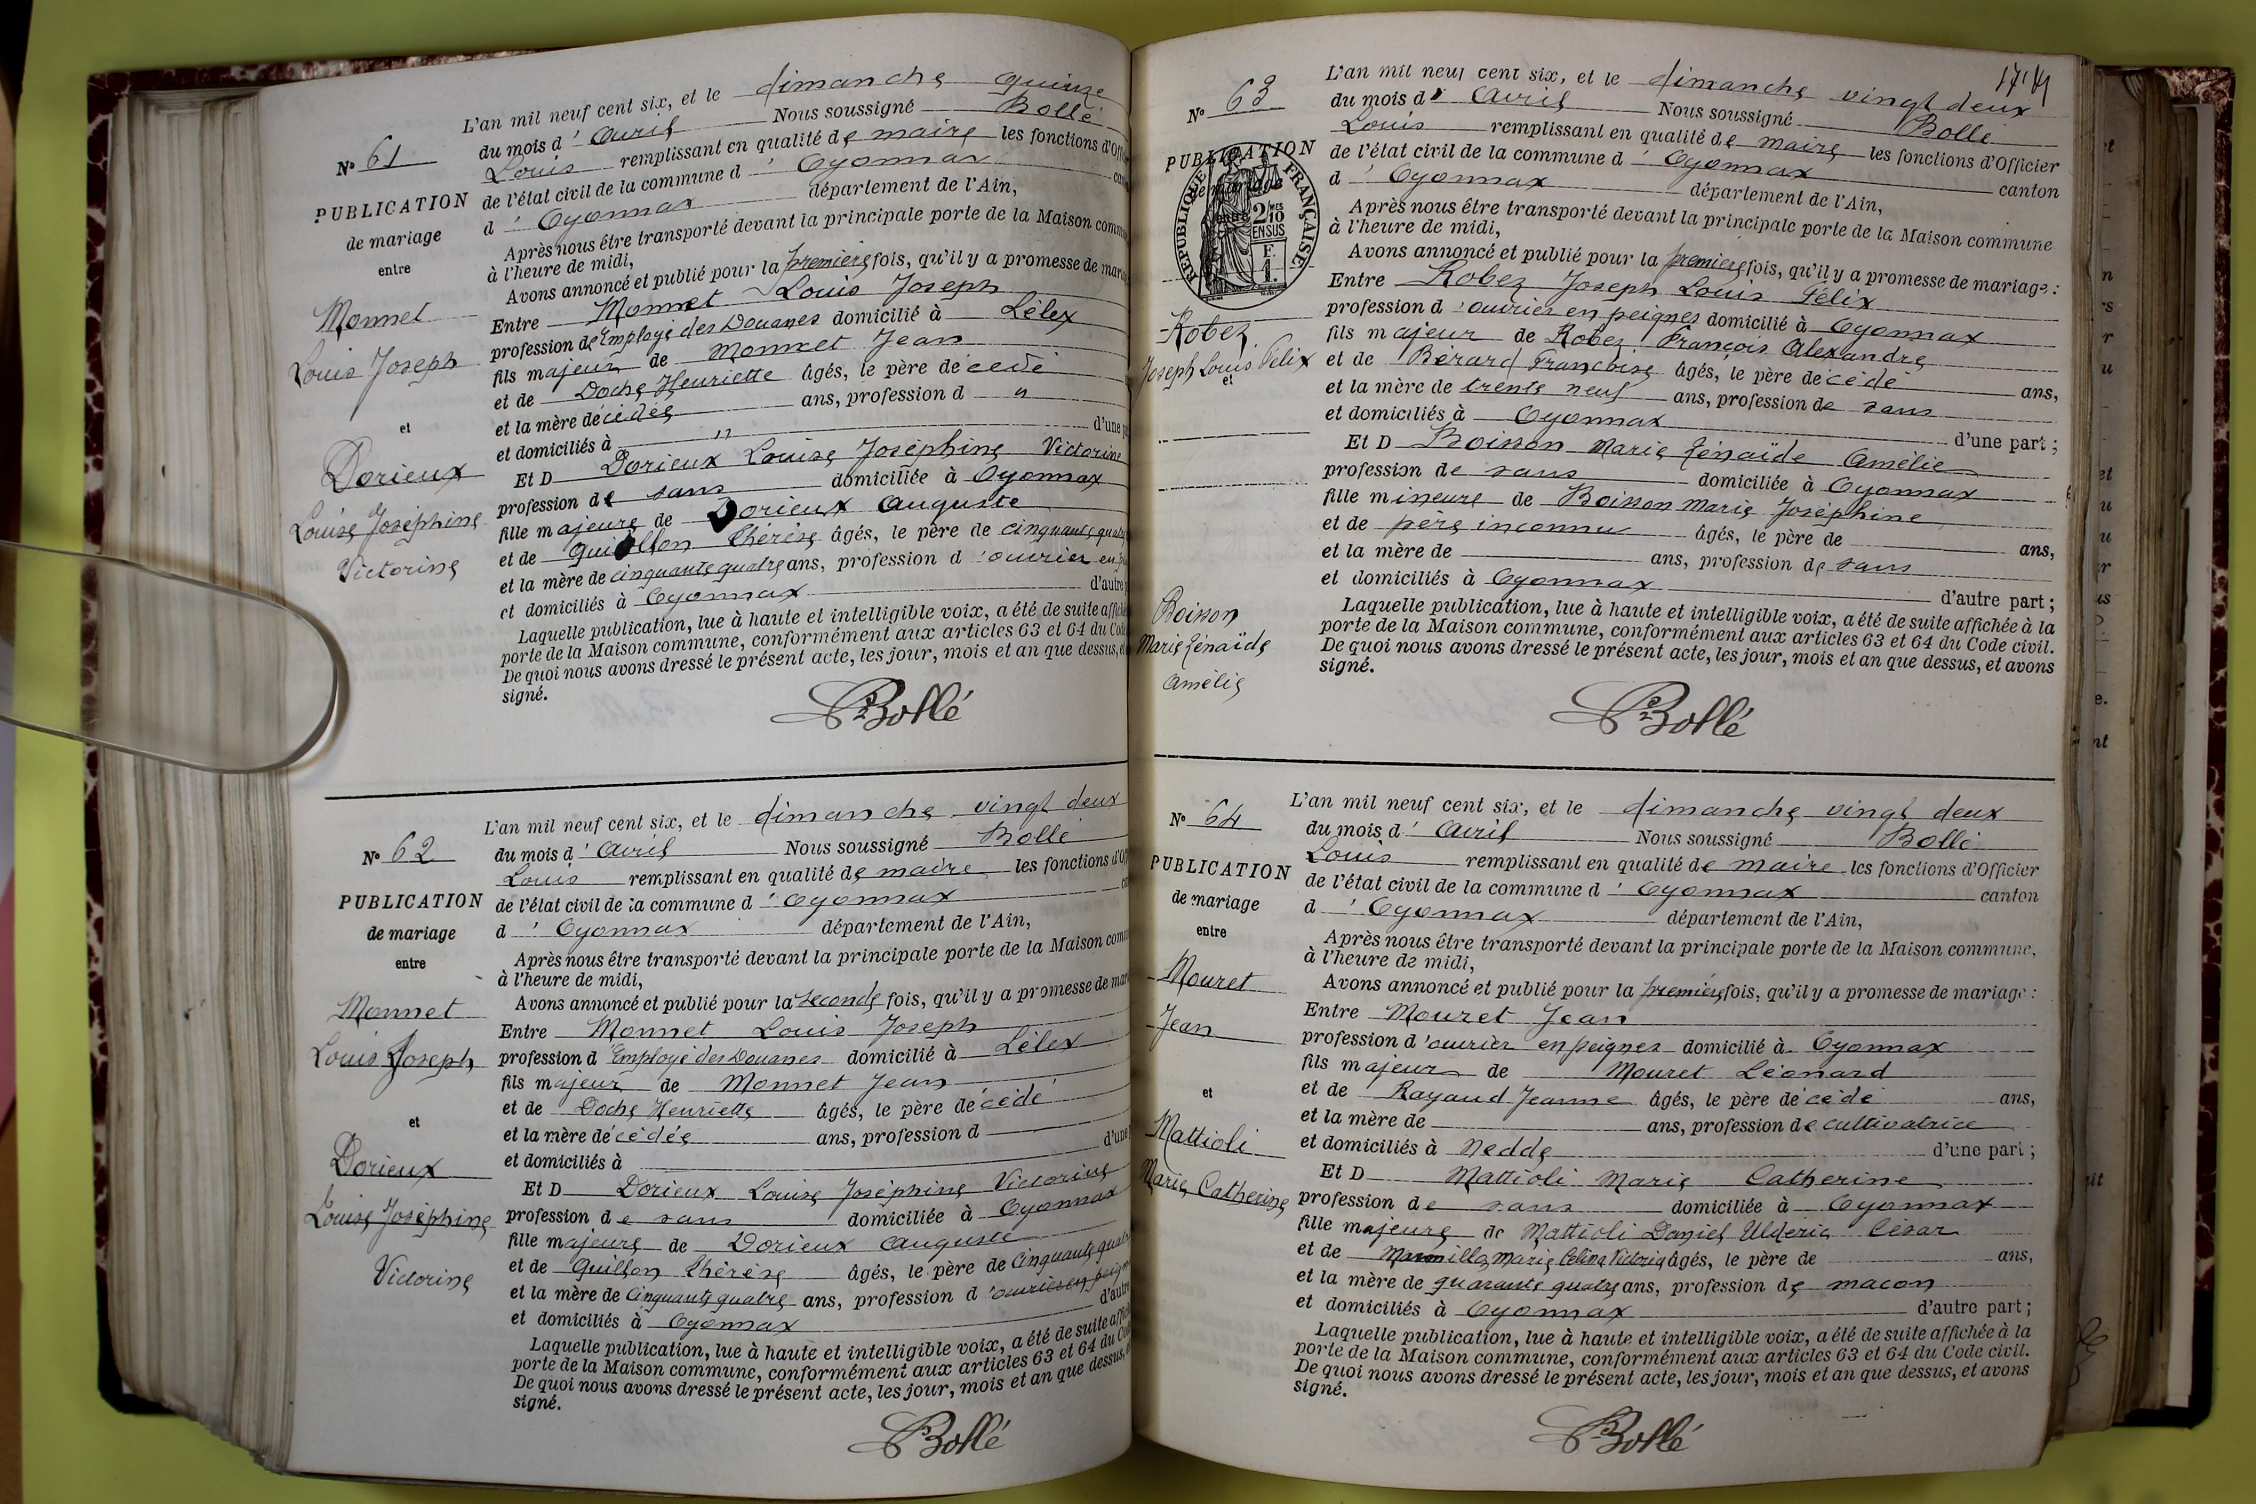 L'an mil neuf cent six, et le dimanche quinze
du mois d' Avril Nous soussigné Bollé
Louis remplissant en qualité de maire les fonctions d'Off
de l'état civil de la commune d' Oyonnax can
d' Oyonnax département de l'Ain,
Après nous être transporté devant la principale porte de la Maison comm
à l'heure de midi,
Avons annoncé et publié pour la première fois, qu'il y a promesse de mar
Entre Monnet Louis Joseph
profession de Employé des Douanes domicilié à Lélex
fils majeur de Monnet Jean
et de Doche Henriette âgés, le père décédé
et la mère décédée ans, profession d "
et domiciliés à " d'une p
Et D Dorieux Louise Joséphine Victorine
profession de sans domiciliée à Oyonnax
fille majeure de Dorieux Auguste
et de Guillon Thérèse âgés, le père de cinquante quatre
et la mère de cinquante quatre ans, profession d' ouvrier en
et domiciliés à Oyonnax d'autre
Laquelle publication, lue à haute et intelligible voix, a été de suite affiché
porte de la Maison commune, conformément aux articles 63 et 64 du Code
De quoi nous avons dressé le présent acte, les jour, mois et an que dessus, et
signé.
Bollé
N° 61
PUBLICATION
de mariage
entre
Monnet
Louis Joseph
et
Dorieux
Louise Joséphine
Victorine
L'an mil neuf cent six, et le dimanche vingt deux
du mois d' Avril Nous soussigné Bollé
Louis remplissant en qualité de maire les fonctions d'Off
de l'état civil de la commune d' Oyonnax ca
d' Oyonnax département de l'Ain,
Après nous être transporté devant la principale porte de la Maison comm
à l'heure de midi,
Avons annoncé et publié pour la seconde fois, qu'il y a promesse de mar
Entre Monnet Louis Joseph
profession d' Employé des Douanes domicilié à Lélex
fils majeur de Monnet Jean
et de Doche Henriette âgés, le père décédé
et la mère décédée ans, profession d
et domiciliés à d'une
Et D Dorieux Louise Joséphine Victorine
profession de sans domiciliée à Oyonnax
fille majeure de Dorieux Auguste
et de Guillon Thérèse âgés, le père de cinquante quatre
et la mère de cinquante quatre ans, profession d' ouvrier en peign
et domiciliés à Oyonnax d'autre
Laquelle publication, lue à haute et intelligible voix, a été de suite affich
porte de la Maison commune, conformément aux articles 63 et 64 du Co
De quoi nous avons dressé le présent acte, les jour, mois et an que dessus,
signé.
Bollé
N° 62
PUBLICATION
de mariage
entre
Monnet
Louis Joseph
et
Dorieux
Louise Joséphine
Victorine
L'an mil neuf cent six, et le dimanche vingt deux
du mois d' Avril Nous soussigné Bollé
Louis remplissant en qualité de maire les fonctions d'Officier
de l'état civil de la commune d' Oyonnax canton
d' Oyonnax département de l'Ain,
Après nous être transporté devant la principale porte de la Maison commune
à l'heure de midi,
Avons annoncé et publié pour la première fois, qu'il y a promesse de mariage :
Entre Robez Joseph Louis Félix
profession d' ouvrier en peignes domicilié à Oyonnax
fils majeur de Robez François Alexandre
et de Bérard Françoise âgés, le père décédé ans,
et la mère de trente neuf ans, profession de sans
et domiciliés à Oyonnax d'une part ;
Et D Boisson Marie Zénaïde Amélie
profession de sans domiciliée à Oyonnax
fille mineure de Boisson Marie Joséphine
et de père inconnu âgés, le père de ans,
et la mère de ans, profession de sans
et domiciliés à Oyonnax d'autre part ;
Laquelle publication, lue à haute et intelligible voix, a été de suite affichée à la
porte de la Maison commune, conformément aux articles 63 et 64 du Code civil.
De quoi nous avons dressé le présent acte, les jour, mois et an que dessus, et avons
signé.
Bollé
N° 63
PUBLICATION
de mariage
entre
RÉPUBLIQUE FRANÇAISE
2/10 MES
EN SUS
F.
1.
Robez
Joseph Louis Félix
et
Boisson
Marie Zénaïde
Amélie
L'an mil neuf cent six, et le dimanche vingt deux
du mois d' Avril Nous soussigné Bollé
Louis remplissant en qualité de maire les fonctions d'Officier
de l'état civil de la commune d' Oyonnax canton
d' Oyonnax département de l'Ain,
Après nous être transporté devant la principale porte de la Maison commune,
à l'heure de midi,
Avons annoncé et publié pour la première fois, qu'il y a promesse de mariage :
Entre Mouret Jean
profession d' ouvrier en peignes domicilié à Oyonnax
fils majeur de Mouret Léonard
et de Rayaud Jeanne âgés, le père décédé ans,
et la mère de ans, profession de cultivatrice
et domiciliés à Nedde d'une part ;
Et D Mattioli Marie Catherine
profession de sans domiciliée à Oyonnax
fille majeure de Mattioli Daniel Ulderic César
et de Marie Celina Victoria âgés, le père de ans,
et la mère de quarante quatre ans, profession de macon
et domiciliés à Oyonnax d'autre part ;
Laquelle publication, lue à haute et intelligible voix, a été de suite affichée à la
porte de la Maison commune, conformément aux articles 63 et 64 du Code civil.
De quoi nous avons dressé le présent acte, les jour, mois et an que dessus, et avons
signé.
Bollé
N° 64
PUBLICATION
de mariage
entre
Mouret
Jean
et
Mattioli
Marie Catherine